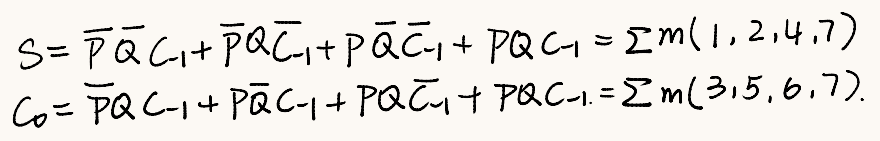 S = P̅ Q̅ C₋₁ + P̅ Q C̅₋₁ + P Q̅ C̅₋₁ + P Q C₋₁ = Σ m(1,2,4,7)
C₀ = P̅ Q C₋₁ + P Q̅ C₋₁ + P Q C̅₋₁ + P Q C₋₁. = Σ m(3,5,6,7).